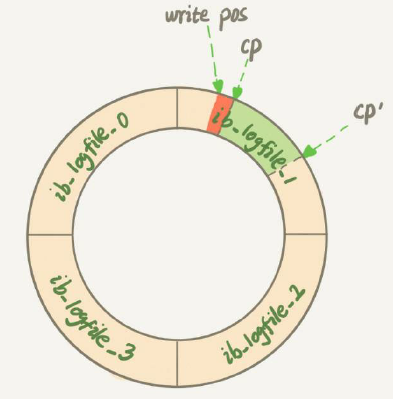 write pos
cp
cp'
ib_logfile_0
ib_logfile_1
ib_logfile_3
ib_logfile_2